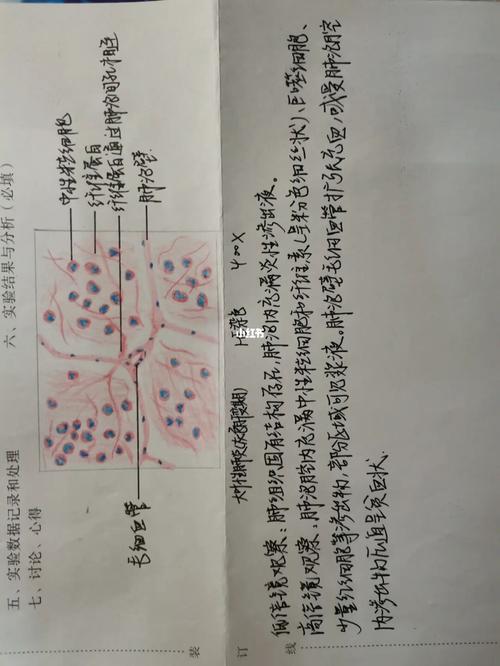 五、实验数据记录和处理
六、实验结果与分析（必填）
七、讨论、心得
中性粒细胞
纤维蛋白
纤维蛋白通过肺泡间孔相连
肺泡壁
毛细血管
小红书
大叶性肺炎(灰色肝变期)
400X
装
订
线
低倍镜观察：肺组织固有结构存在，肺泡内充满炎性渗出液。
高倍镜观察：肺泡腔内充满中性粒细胞和纤维素(呈粉色细丝状)、巨噬细胞、
少量红细胞等渗出物，部分区域可见浆液。肺泡壁毛细血管扩张充血，或受肺泡腔
内渗出物压迫呈贫血状。